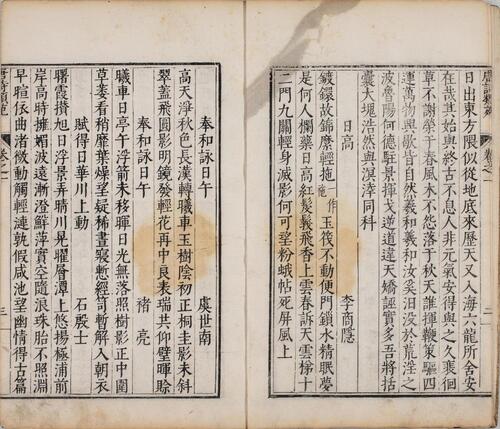 日出東方隈似從地底來歷天又入海六龍所舍安
在哉其始與終古不息人非元氣安得與之久裵徊
草不謝榮于春風木不怨落于秋天誰揮鞭策驅四
運萬物興歇皆自然羲和羲和汝奚汩没於荒淫之
波魯陽何德駐景揮戈逆道違天矯誣實多吾將括
囊大塊浩然與溟涬同科
日高 李商隱
鍍鐶故錦縻輕拖一作䢪玉筏不動便門鎖水精眠夢
是何人欄藥日高紅髲䯫飛香上雲春訴天雲梯十
二門九關輕身滅影何可望粉蛾帖死屏風上
奉和詠日午 虞世南
高天淨秋色長漢轉曦車玉樹陰初正桐圭影未斜
翠蓋飛圓影明鏡發輕花再中良表瑞共仰璧暉賒
奉和詠日午 褚亮
曦車日亭午浮箭未移暉日光無落照樹影正中圍
草萎看稍靡葉燥望疑稀晝寢慙經笥暫解入朝衣
賦得日華川上動 石殷士
曙霞攢旭日浮景弄晴川晃曜層潭上悠揚極浦前
岸高時擁媚波遠漸澄鮮萍實空隨浪珠胎不照淵
早暄依曲渚微動觸輕漣孰假咸池望幽情得古篇
卷之一
三